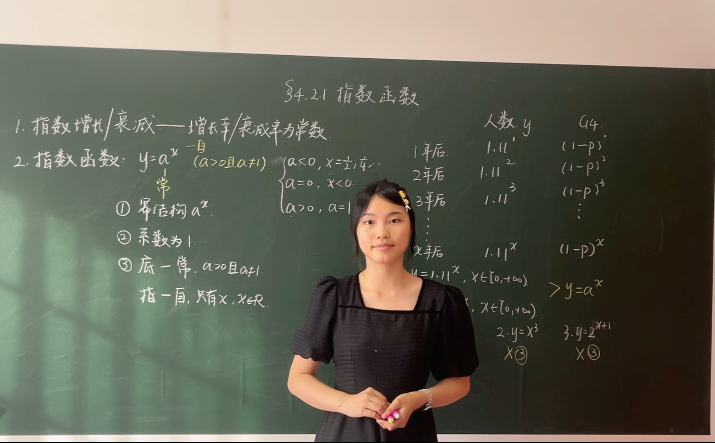 §4.2.1 指数函数
1. 指数增长/衰减——增长率/衰减率为常数.
2. 指数函数: y=a^x (a>0且a≠1)
自
常
① 幂结构 a^x.
② 系数为1
③ 底一常, a>0且a≠1
指一自, 只有x, x∈R.
a<0, x=1/2, 1/4, …
a=0, x<0
a>0, a=1
人数 y
C14
1年后 1.11^1 (1-p)^1
2年后 1.11^2 (1-p)^2
3年后 1.11^3 (1-p)^3
⋮ ⋮
x年后 1.11^x (1-p)^x
y=1.11^x, x∈[0,+∞)
x, x∈[0,+∞)
> y=a^x
2. y=x^3 3. y=2^{x+1}
× ③ × ③